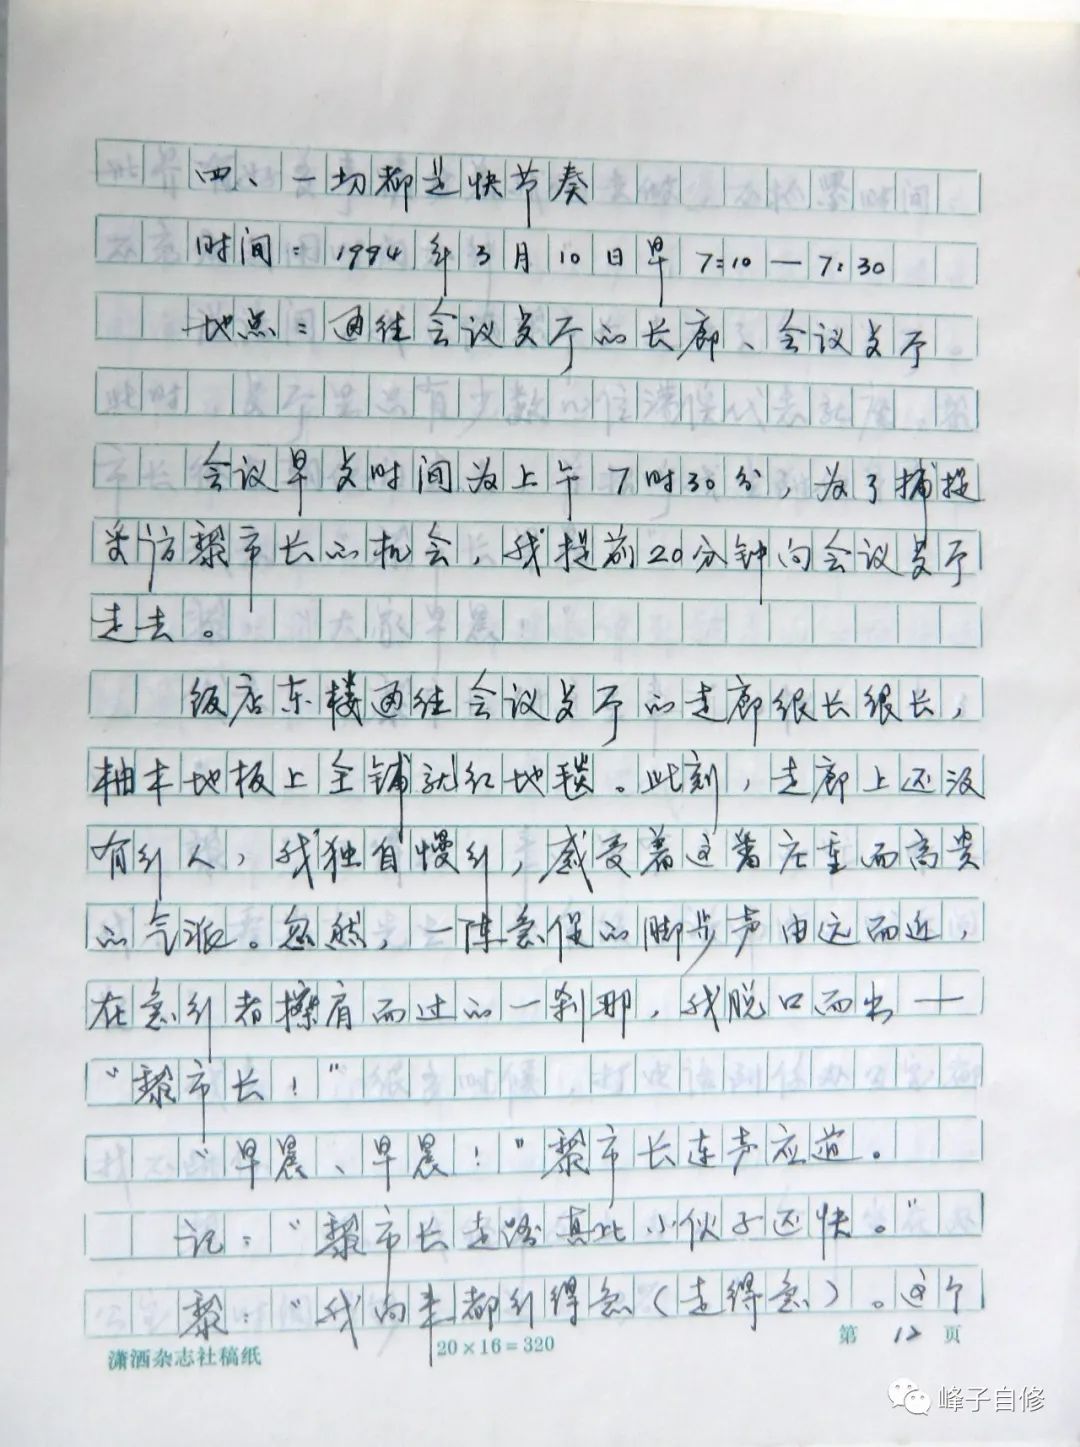 四、一切都是快节奏
时间：1994年3月10日早7:10—7:30
地点：通往会议餐厅的长廊、会议餐厅。
会议早餐时间为上午7时30分，为了捕捉
采访黎市长的机会，我提前20分钟向会议餐厅
走去。
饭店东楼通往会议餐厅的走廊很长很长，
柚木地板上全铺就红地毯。此刻，走廊上还没
有行人，我独自慢行，感受着这番庄重而高贵
的气派。忽然，一阵急促的脚步声由远而近，
在急行者擦肩而过的一刹那，我脱口而出——
“黎市长！”
“早晨、早晨！”黎市长连声应道。
记：“黎市长走路真比小伙子还快。”
黎：“我向来都行得急（走得急）。这个
潇洒杂志社稿纸 20×16=320 第12页
峰子自修